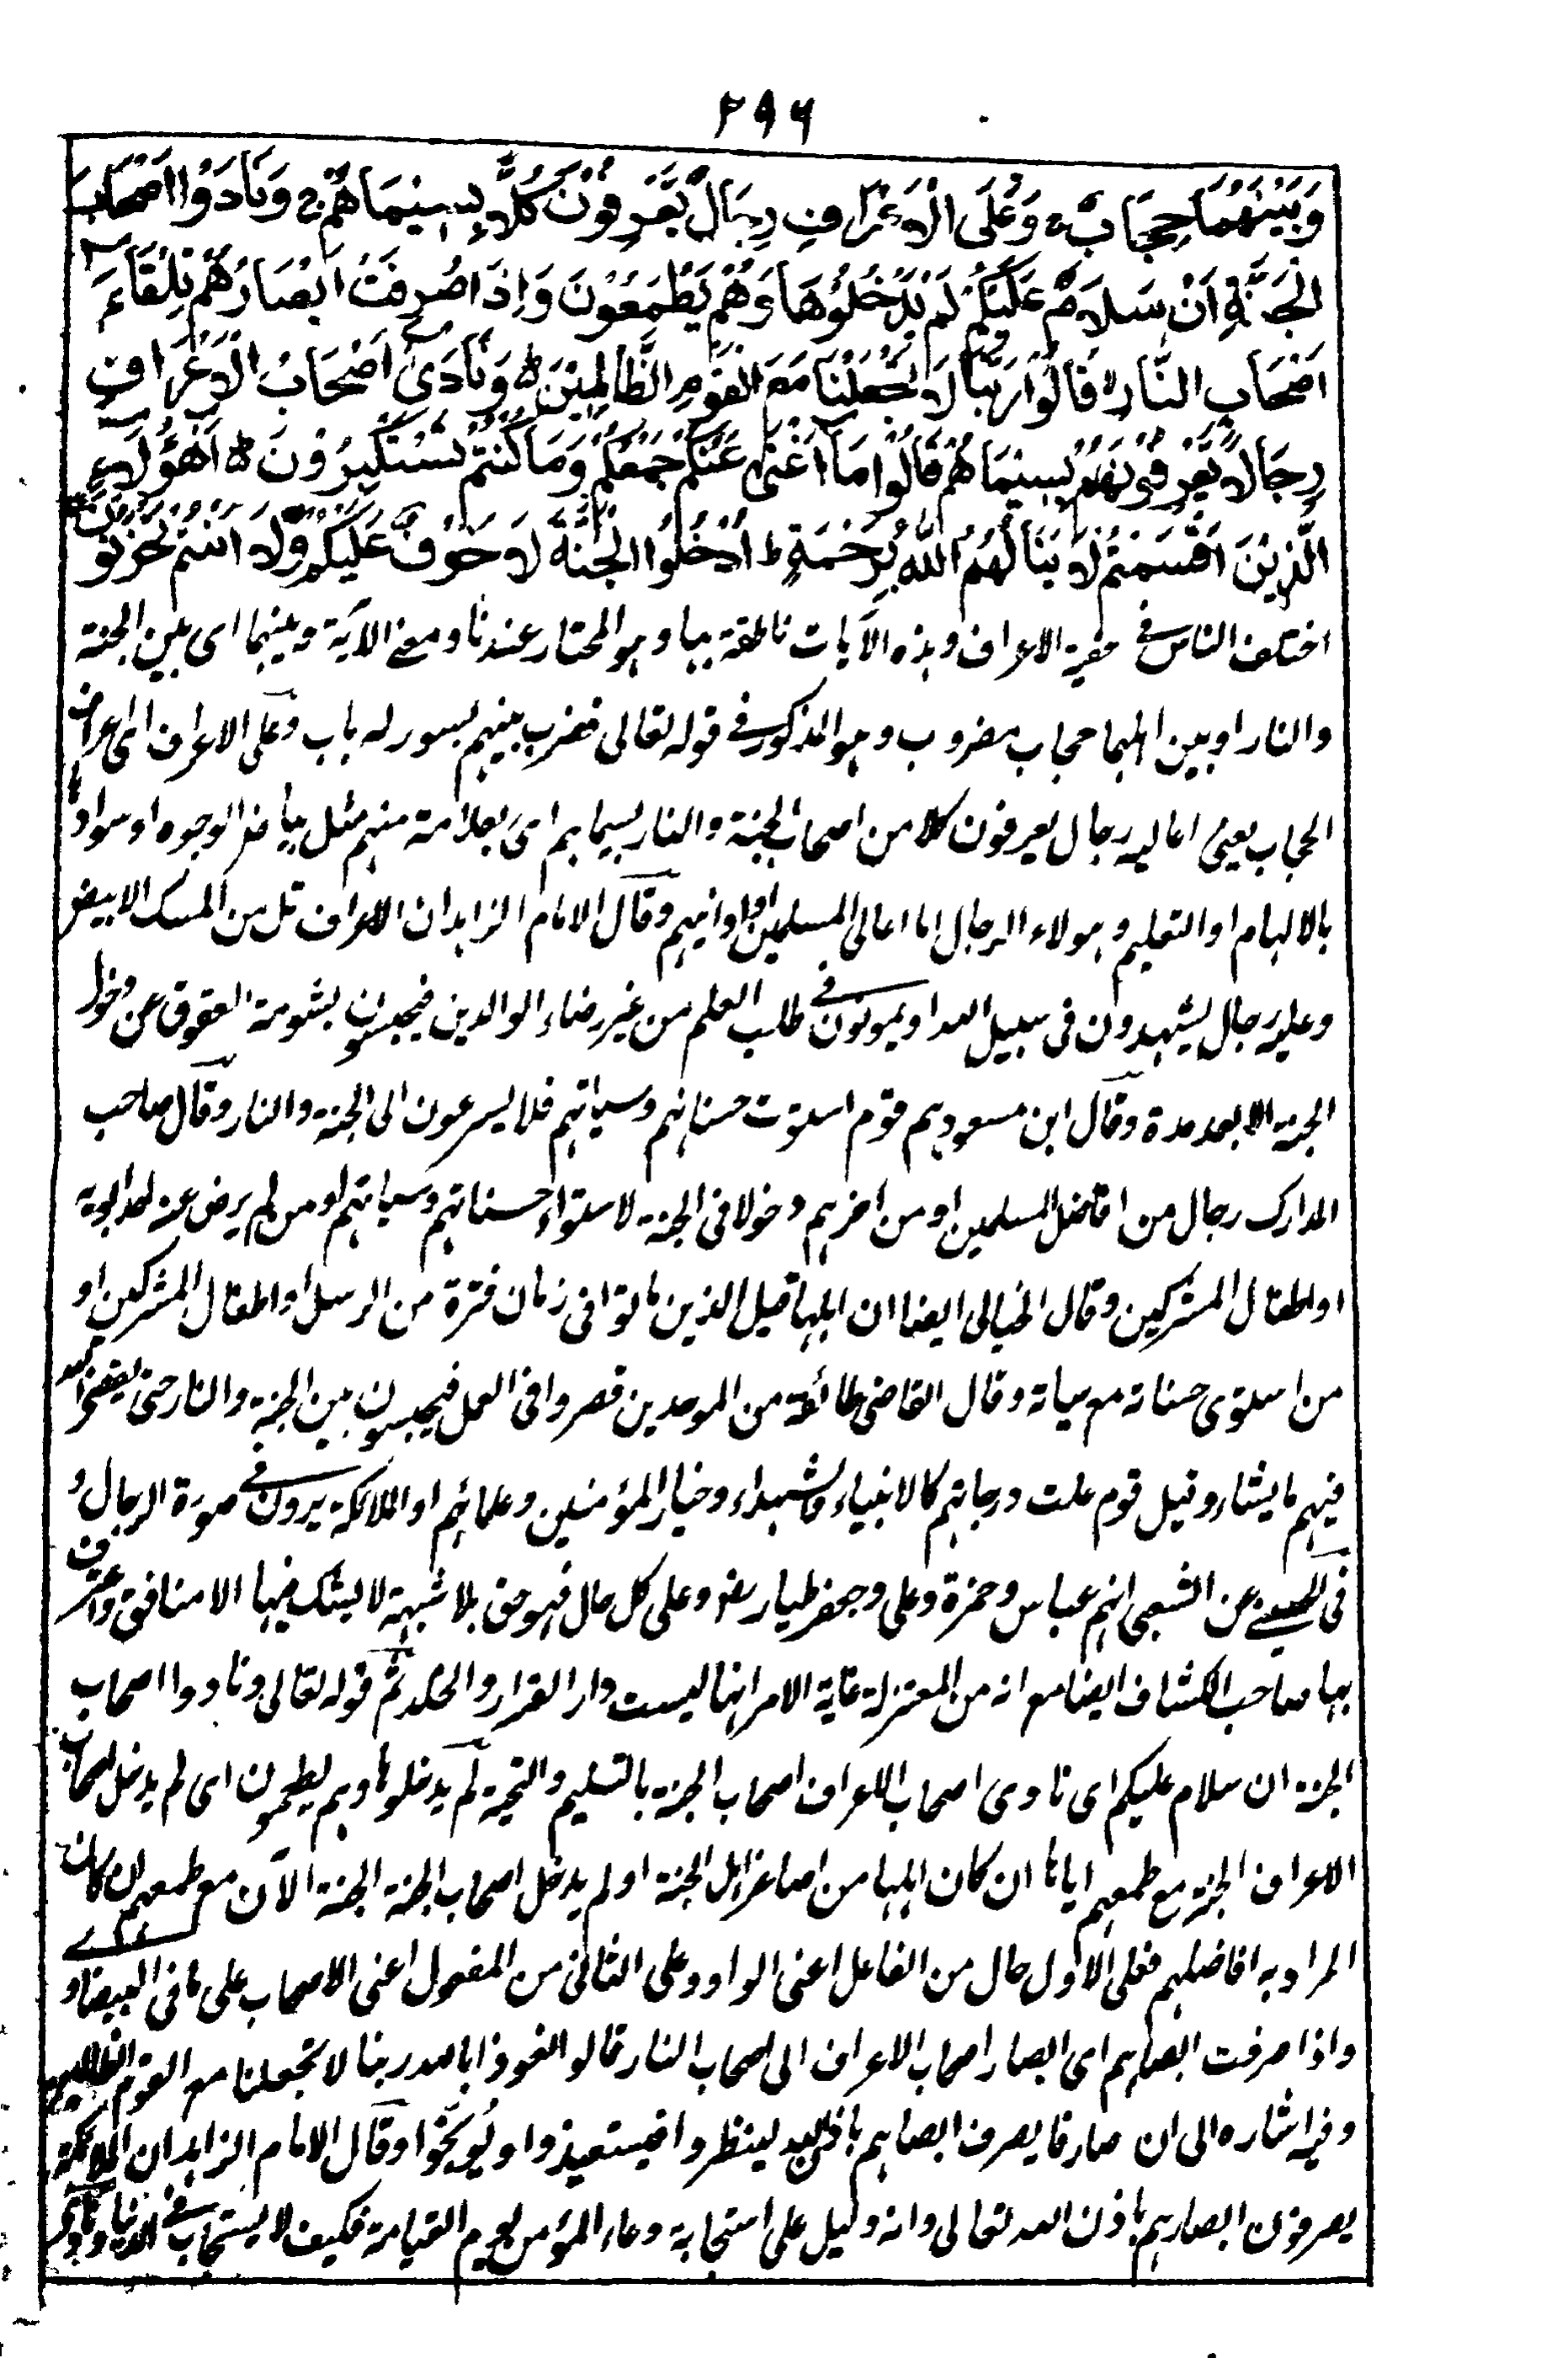 ٢٩٩
وَبَيْنَهُمَا حِجَابٌ ج وَعَلَى الْاَعْرَافِ رِجَالٌ يَّعْرِفُوْنَ كُلًّاۢ بِسِيْمَاهُمْ ج وَنَادَوْا اَصْحَابَ
الْجَنَّةِ اَنْ سَلَامٌ عَلَيْكُمْ لَمْ يَدْخُلُوْهَا وَهُمْ يَطْمَعُوْنَ وَاِذَا صُرِفَتْ اَبْصَارُهُمْ تِلْقَآءَ
اَصْحَابِ النَّارِ لا قَالُوْا رَبَّنَا لَا تَجْعَلْنَا مَعَ الْقَوْمِ الظَّالِمِيْنَ ط وَنَادَىٰٓ اَصْحَابُ الْاَعْرَافِ
رِجَالًا يَّعْرِفُوْنَهُمْ بِسِيْمَاهُمْ قَالُوْا مَآ اَغْنٰى عَنْكُمْ جَمْعُكُمْ وَمَا كُنْتُمْ تَسْتَكْبِرُوْنَ ط اَهٰٓؤُلَآءِ
الَّذِيْنَ اَقْسَمْتُمْ لَا يَنَالُهُمُ اللّٰهُ بِرَحْمَةٍ ط اُدْخُلُوا الْجَنَّةَ لَا خَوْفٌ عَلَيْكُمْ وَلَا اَنْتُمْ تَحْزَنُوْنَ
اختلف الناس فى حقية الاعراف وهذه الآيات ناطقة بها وهو المختار عندنا ومعنى الآية وبينهما اى بين الجنة
والنار او بين اهلهما حجاب مضروب وهو المذكور فى قوله تعالى فضرب بينهم بسور له باب وعلى الاعراف اى اعراف
الحجاب يعنى اعاليه رجال يعرفون كلا من اصحاب الجنة والنار بسيماهم اى بعلامة منهم مثل بياض الوجوه او سوادها
بالالهام او التعليم وهولاء الرجال اما اعالى المسلمين او ادانيهم وقال الامام الزاهد ان الاعراف تل من المسك الابيض
وعليه رجال يشهدون فى سبيل الله او يموتون فى طلب العلم من غير رضاء الوالدين فيحبسون بشومة العقوق عن دخول
الجنة الا بعد مدة وقال ابن مسعود هم قوم استوت حسناتهم وسياتهم فلا يسرعون الى الجنة والنار وقال صاحب
المدارك رجال من افاضل المسلمين او من آخرهم دخولا فى الجنة لاستواء حسناتهم وسياتهم او من لم يرض عنه احد ابويه
او اطفال المشركين وقال الخيالى ايضا ان اهلها قيل الذين ماتوا فى زمان فترة من الرسل او اطفال المشركين او
من استوى حسناته مع سياته وقال القاضى طائفة من الموحدين قصروا فى العمل فيحبسون بين الجنة والنار حتى يقضى الله
فيهم ما يشاء وقيل قوم علت درجاتهم كالانبياء والشهداء وخيار المؤمنين وعلمائهم او الملائكة يرون فى صورة الرجال و
فى الحسينى عن الشعبى انهم عباس وحمزة وعلى وجعفر طيار رضو وعلى كل حال فهو حق بلا شبهة لا يشك فيها الا منافق واعترف
بها صاحب الكشاف ايضا مع انه من المعتزلة غاية الامر انها ليست دار القرار والخلد ثم قوله تعالى ونادوا اصحاب
الجنة ان سلام عليكم اى نادى اصحاب الاعراف اصحاب الجنة بالتسليم والتحية لم يدخلوها وهم يطمعون اى لم يدخل اصحاب
الاعراف الجنة مع طمعهم اياها ان كان اهلها من اصاغر اهل الجنة او لم يدخل اصحاب الجنة الجنة الآن مع طمعهم ان كان
المراد به افاضلهم فعلى الاول حال من الفاعل اعنى الواو وعلى الثانى من المفعول اعنى الاصحاب على ما فى البيضاوى
واذا صرفت ابصارهم اى ابصار اصحاب الاعراف الى اصحاب النار قالوا نعوذا بالله ربنا لا تجعلنا مع القوم الظالمين
وفيه اشاره الى ان صارفا يصرف ابصارهم لينظروا فيستعيذوا ويُوَبَّخوا وقال الامام الزاهد ان الملائكة
يصرفون ابصارهم باذن الله تعالى وانه دليل على استجابة دعاء المؤمن يوم القيامة فكيف لا يستجاب فى الدنيا ونادى